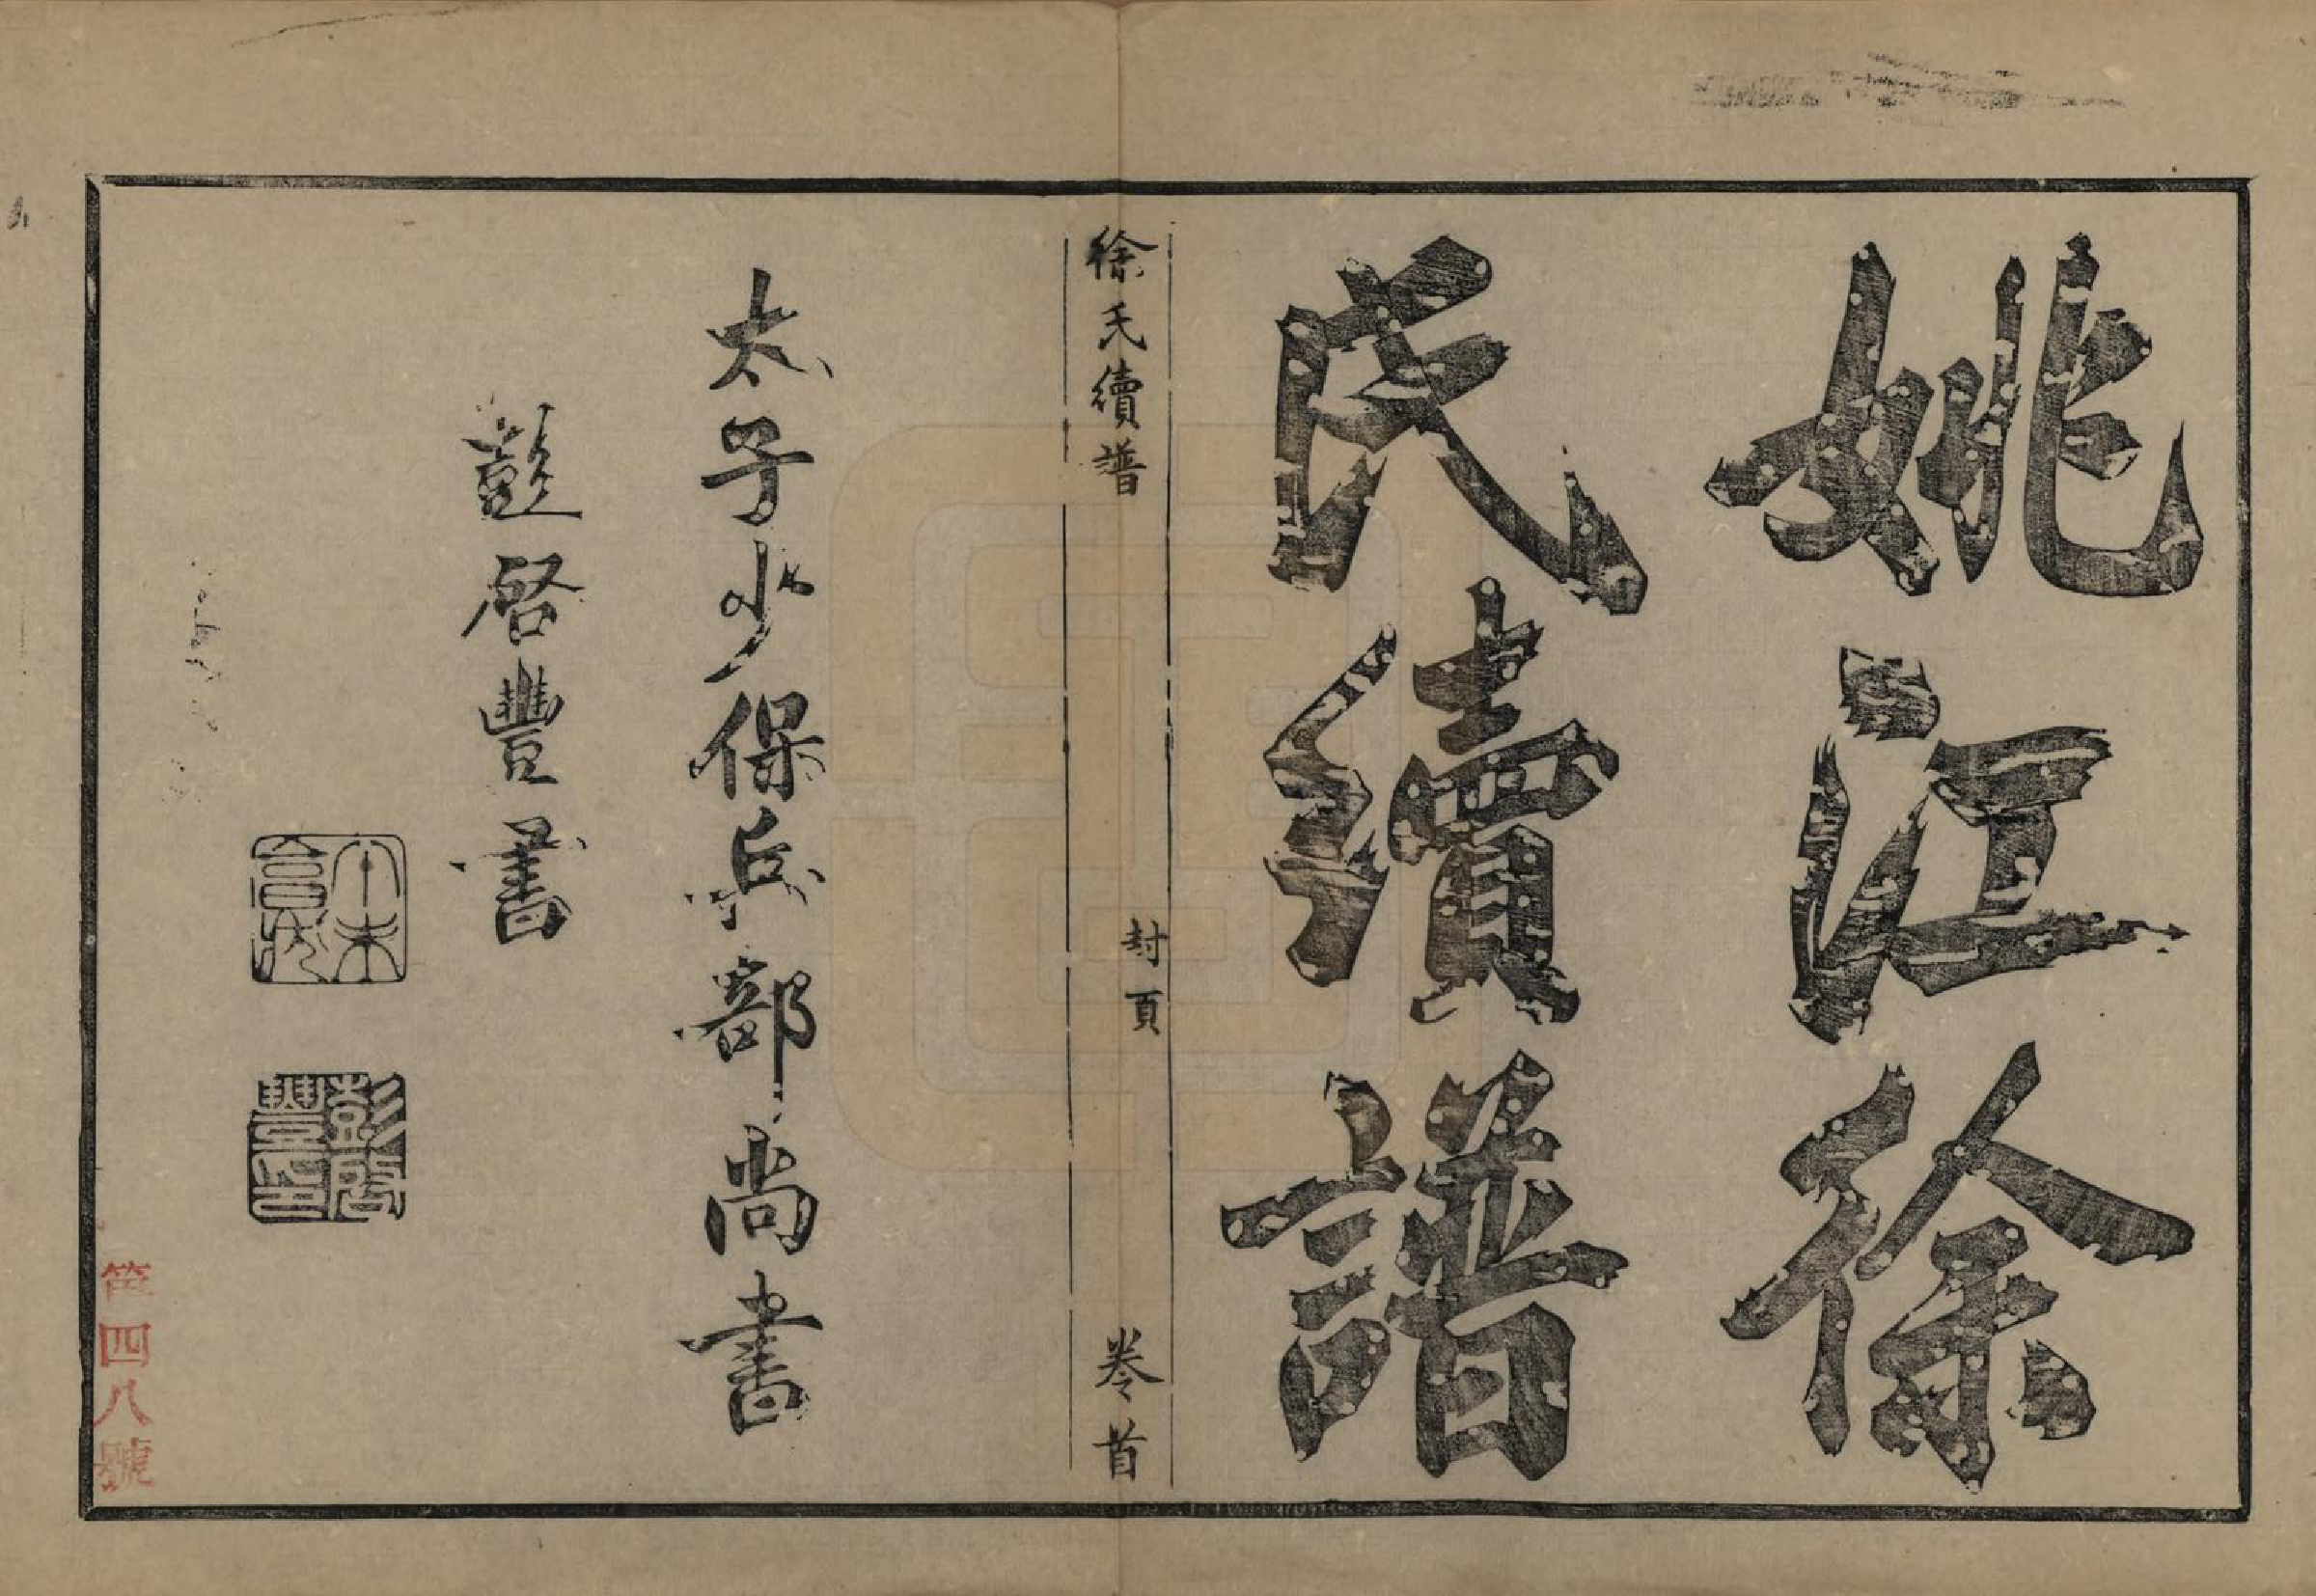 姚江徐
氏續譜
徐氏續譜
封頁
卷首
太子少保兵部尚書
彭啓豐書
彭啓豐印
第四八號